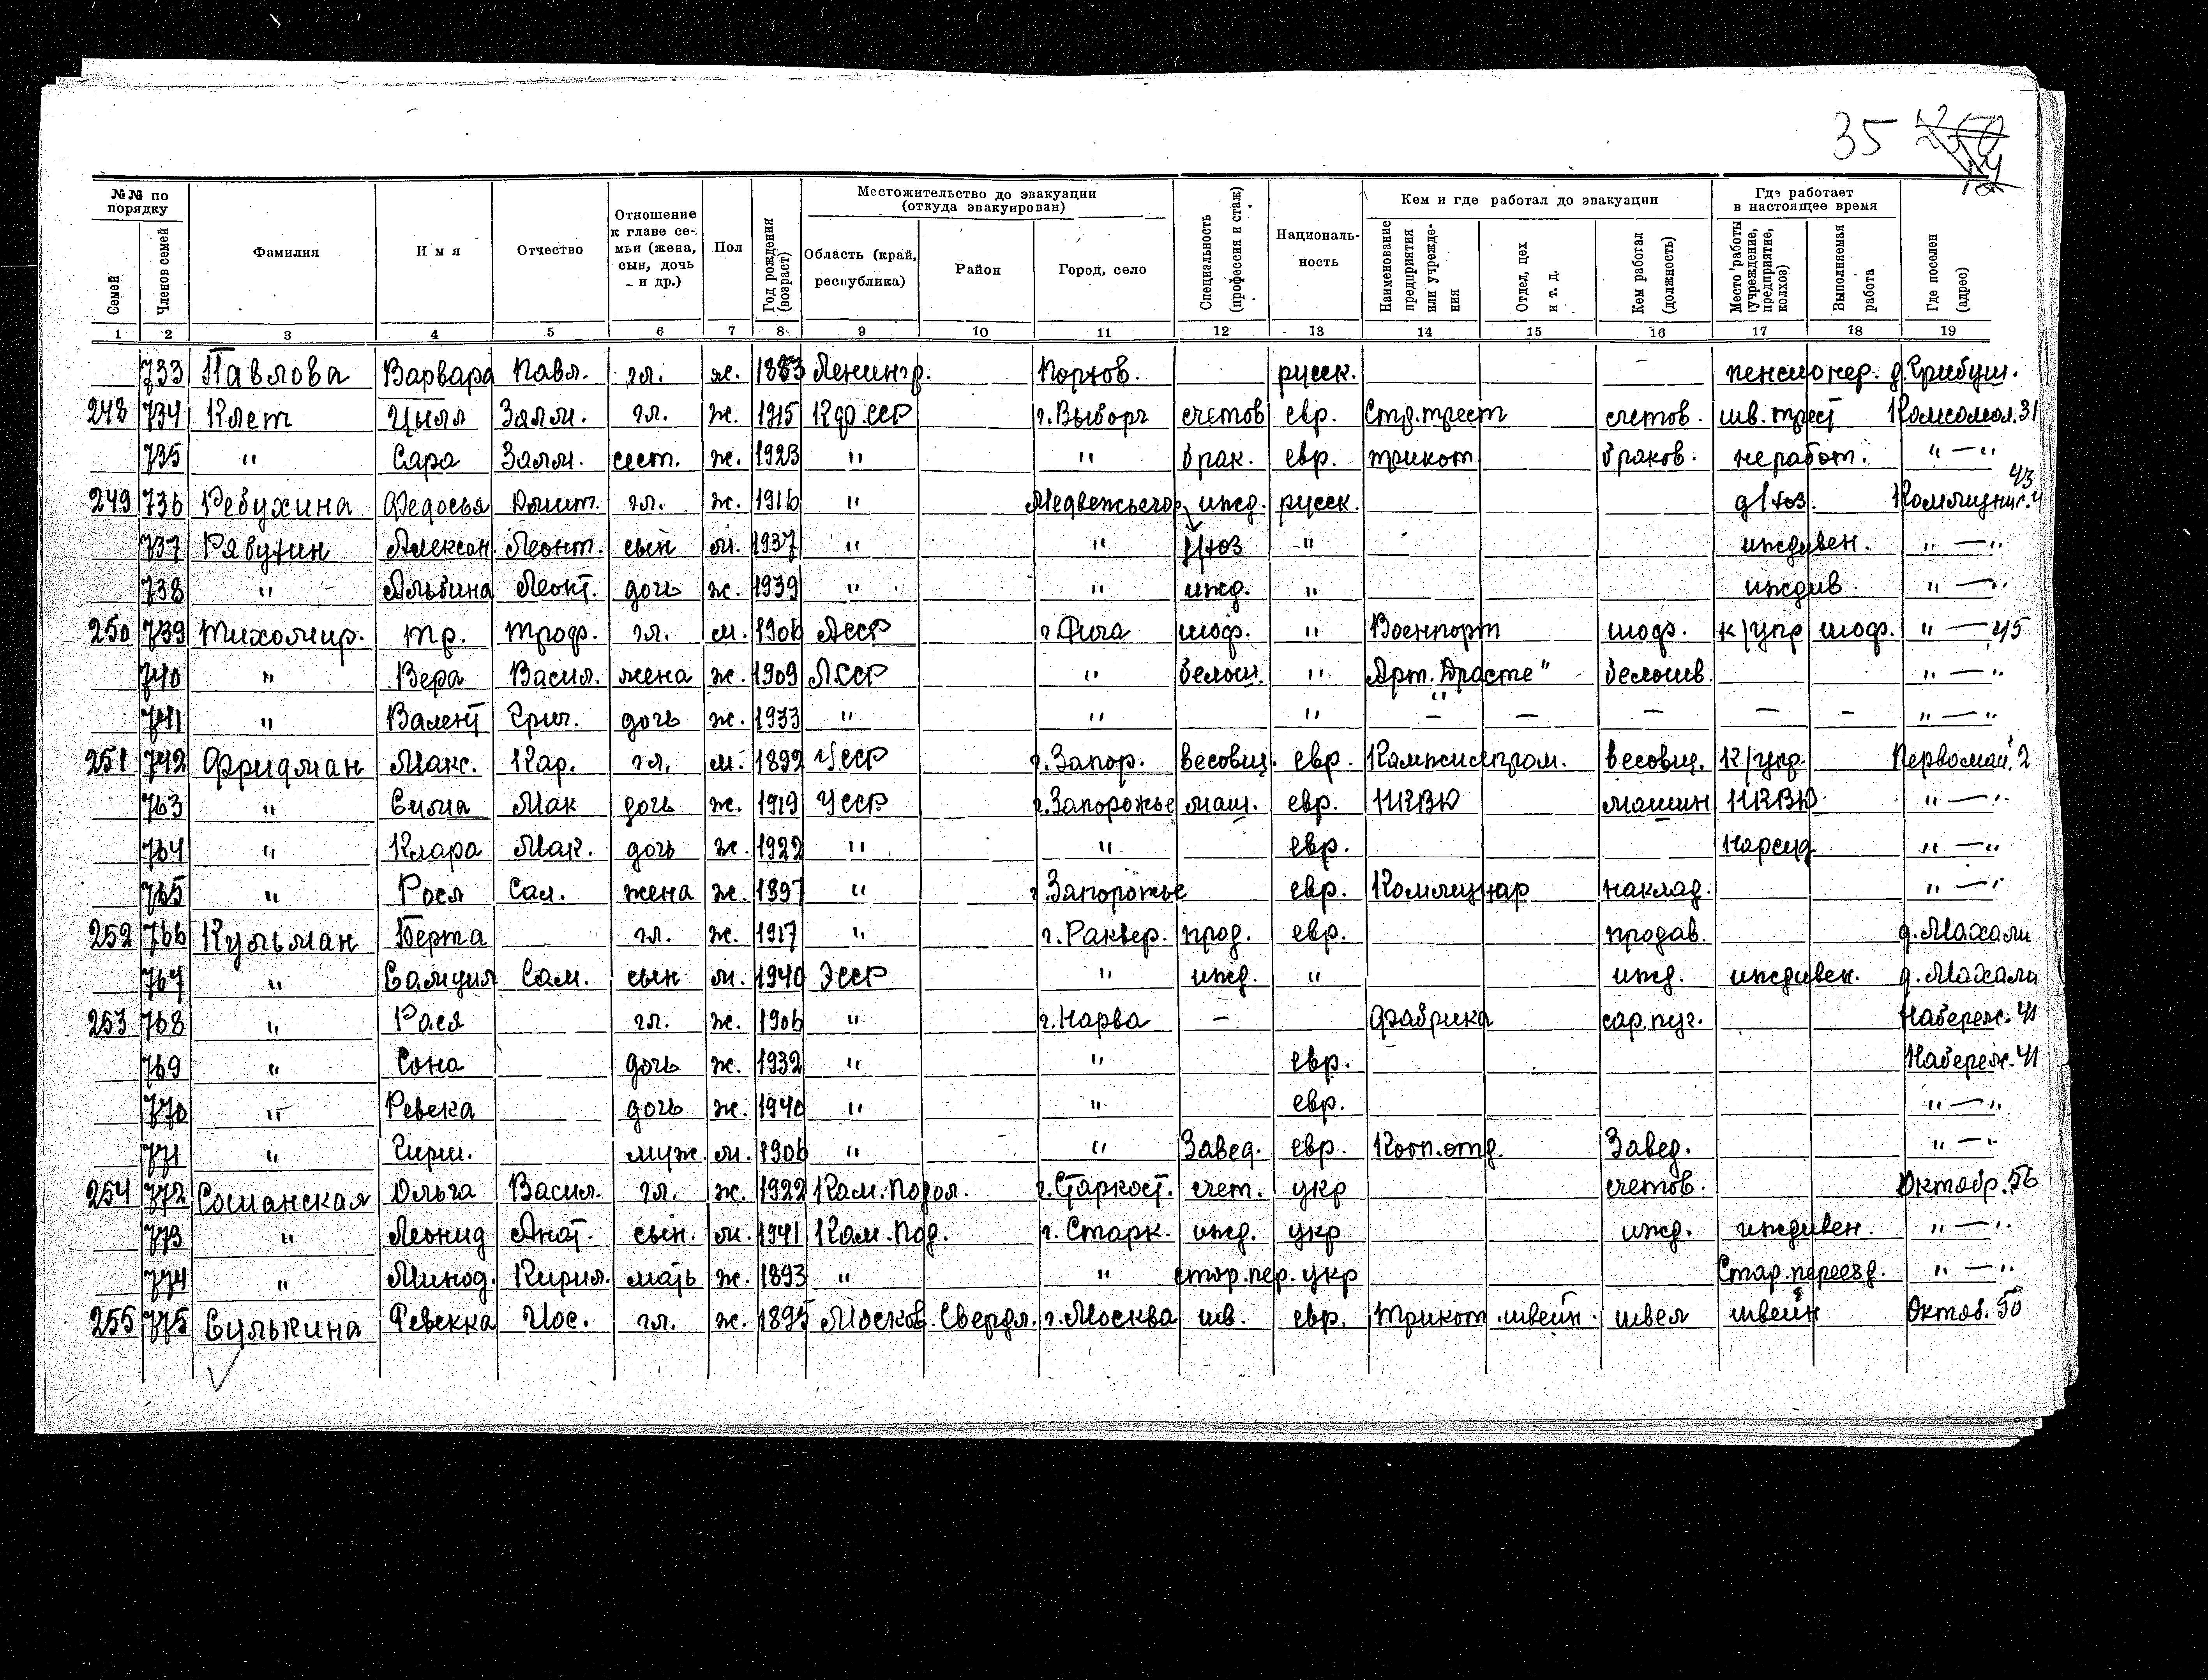 35
№№ по порядку
Местожительство до эвакуации (откуда эвакуирован)
Кем и где работал до эвакуации
Где работает в настоящее время
Семей
Членов семей
Фамилия
Имя
Отчество
Отношение к главе се- мьи (жена, сын, дочь и др.)
Пол
Год рождения (возраст)
Область (край, республика)
Район
Город, село
Специальность (профессия и стаж)
Националь- ность
Наименование предприятия или учрежде- ния
Отдел, цех и т. д.
Кем работал (должность)
Место работы (учреждение, предприятие, колхоз)
Выполняемая работа
Где поселен (адрес)
1 2 3 4 5 6 7 8 9 10 11 12 13 14 15 16 17 18 19
733 Павлова Варвара Павл. гл. ж. 1883 Ленингр. русск. пенсионер. д. Грибуш.
248 734 Клет Цыля Залм. гл. ж. 1915 Кф.ССР г. Выборг счетов евр. Стр. трест счетов. шв. трест Комсомол. 31
735 " Сара Залм. сест. ж. 1923 " " брак. евр. трикот браков. не работ. " — "
249 736 Ребухина Федосья Дмит. гл. ж. 1916 " Медвежьегор. ижд. русск. д/хоз.
737 Рябухин Алексан. Леонт. сын м. 1937 " " д/хоз " иждивен. " — "
738 " Альбина Леонт. дочь ж. 1939 " " ижд. " иждив. " — "
250 739 Тихомир. Тр. Троф. гл. м. 1906 ЛССР г. Рига шоф. " Военпорт шоф. к/упр шоф. " — 45
740 " Вера Васил. жена ж. 1909 ЛССР " белош. " Арт. „Драсте" белошв. " — "
741 " Валент Григ. дочь ж. 1933 " " " — — — — — " — "
251 742 Фридман Макс. Кар. гл. м. 1892 УССР г. Запор. весовщ. евр. весовщ. К/упр. Первомай. 2
763 " Сима Мак дочь ж. 1919 УССР г. Запорожье маш. евр. НКВД машин НКВД " — "
764 " Клара Мак. дочь ж. 1922 " " евр. Нарсуд " — "
765 " Рося Сал. жена ж. 1897 " г. Запорожье евр. Коммунар наклад. " — "
252 766 Кульман Берта гл. ж. 1917 " г. Раквер. прод. евр. продав. д. Махали
767 " Самуил Сам. сын м. 1940 ЭССР " ижд. " ижд. иждивен. д. Махали
253 768 " Рася гл. ж. 1906 " г. Нарва — фабрика Набереж. 41
769 " Сона дочь ж. 1932 " " евр. Набереж. 41
770 " Ревека дочь ж. 1940 " " евр. " — "
771 " Гирш. муж. м. 1906 " " Завед. евр. Кооп. отд. Завед. " — "
254 772 Сошанская Ольга Васил. гл. ж. 1922 Кам. Подол. г. Старкост. счет. укр счетов. Октябр. 56
773 " Леонид Анат. сын. м. 1941 Кам. Под. г. Старк. ижд. укр ижд. иждивен. " — "
774 " Минод. Кирил. мать ж. 1893 " " стор. пер. укр Стар. переезд. " — "
255 775 Сулькина Ревекка Иос. гл. ж. 1895 Москов. Свердл. г. Москва шв. евр. Трикот. швейн. швея швейн Октяб. 50